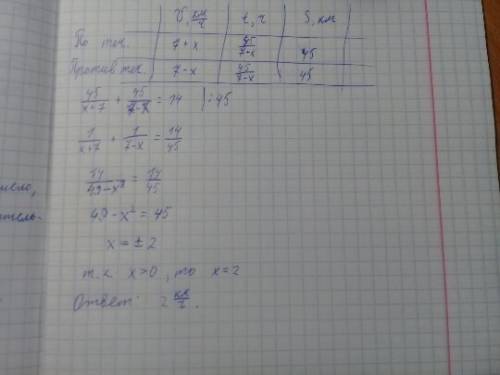 V, км/ч | t, ч | S, км
По теч. | 7+x | 45/7-x | 45
Против теч. | 7-x | 45/7-x | 45
45/x+7 + 45/7-x = 14 |:45
1/x+7 + 1/7-x = 14/45
14/49-x² = 14/45
49-x² = 45
x = ± 2
т.к x>0, то x=2
Ответ: 2 км/ч.